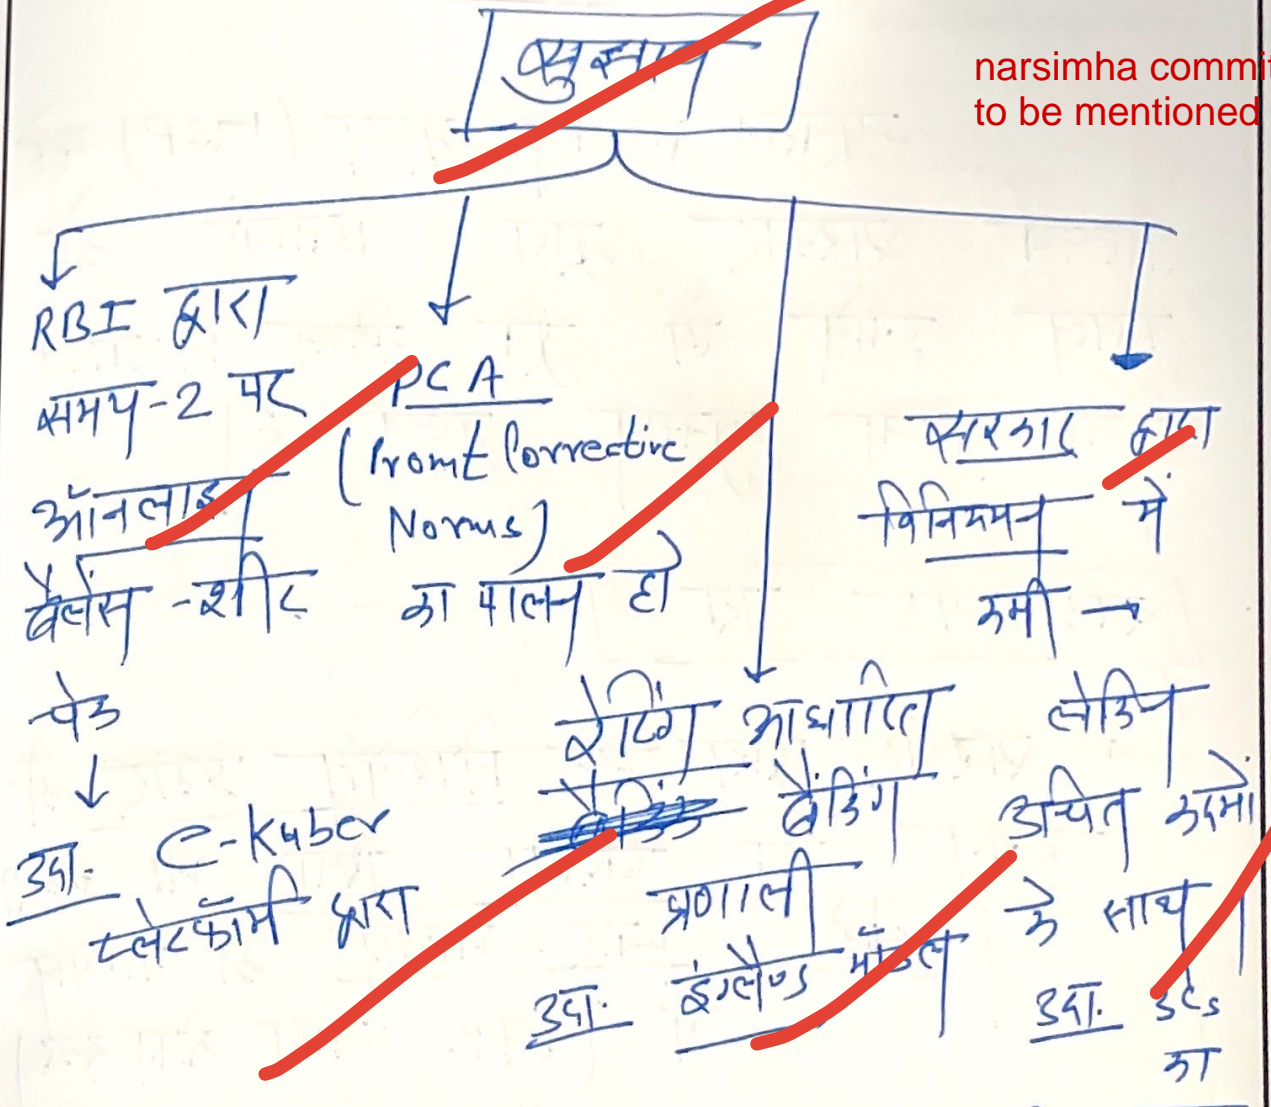 सुझाव
narsimha commit
to be mentioned
RBI द्वारा
समय-2 पर
ऑनलाइन
बैलेंस-शीट
चेक
उदा. e-Kuber
प्लेटफॉर्म द्वारा
PCA
(Promt Corrective
Norms)
का पालन हो
रेटिंग आधारित
बैंकिंग
प्रणाली
उदा. इंग्लैण्ड मॉडल
सरकार द्वारा
विनियमन में
कमी →
लेकिन
उचित कदमों
के साथ
उदा.
का